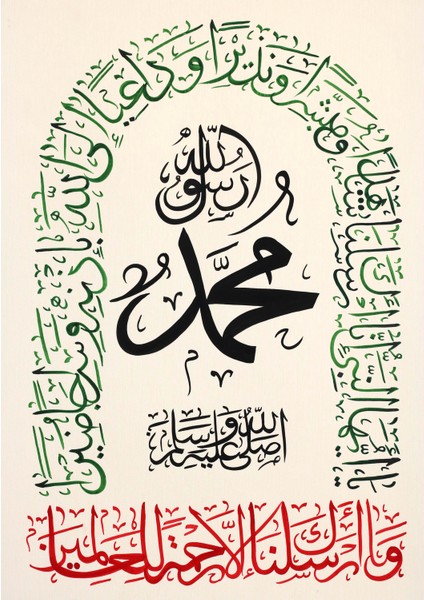 يا أيها النبي إنا أرسلناك شاهدا ومبشرا ونذيرا وداعيا إلى الله بإذنه وسراجا منيرا
محمد
رسول الله
صلى الله عليه وسلم
وما أرسلناك إلا رحمة للعالمين